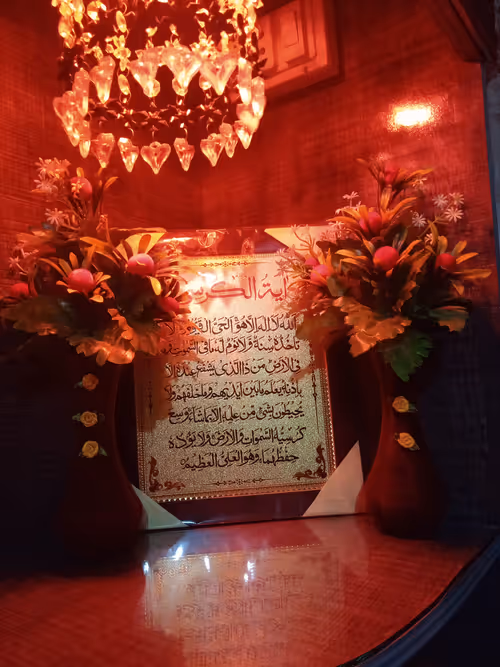 آية الكرسي
الله لا إله إلا هو الحي القيوم لا
تأخذه سنة ولا نوم له ما في السموت وما
في الأرض من ذا الذي يشفع عنده إلا
بإذنه يعلم ما بين أيديهم وما خلفهم ولا
يحيطون بشيء من علمه إلا بما شاء وسع
كرسيه السموات والأرض ولا يؤده
حفظهما وهو العلي العظيم